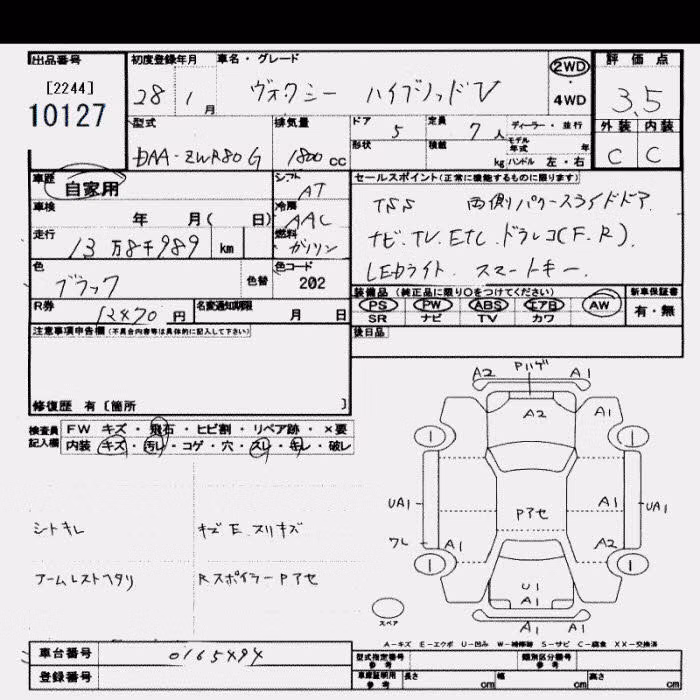 出品番号
[2244]
10127
初度登録年月
28 1月
車名・グレード
ヴォクシー ハイブリッドV
2WD
・
4WD
評価点
3.5
外装 内装
C C
型式
DAA-ZWR80G
排気量
1800cc
ドア 5
定員 7人
ディーラー・並行
形状
積載 kg
モデル年式 年
ハンドル 左・右
車歴
自家用
シフト
AT
車検
年 月( 日)
冷房
AAC
走行
13万8千989 km
燃料
ガソリン
色
ブラック
色替
色コード
202
R券
12470円
名変通知期限
月 日
セールスポイント(正常に機能するものに限ります)
TSS 両側パワースライドドア.
ナビ.TV.ETC.ドラレコ(F.R).
LEDライト. スマートキー.
装備品(純正品に限り○をつけてください)
PS PW ABS エアB AW
SR ナビ TV カワ
新車保証書
有・無
後日品
注意事項申告欄(不具合内容等は具体的に記入して下さい)
修復歴 有〔箇所 〕
検査員記入欄
FW キズ・飛石・ヒビ割・リペア跡・×要
内装 キズ・汚レ・コゲ・穴・スレ・キレ・破レ
シトキレ
キズE.スリキズ
アームレストヘタリ
RスポイラーPアセ
A2 Pハゲ A1
A2 A1
UA1 Pアセ A1 UA1
ワレ A1 A2
U1
A1
A1 A1
スペア
A-キズ E-エクボ U-凹み W-補修跡 S-サビ C-腐食 XX-交換済
車台番号
0165494
登録番号
型式指定番号
参考
類別区分番号
参考
車庫証明用
参考
長さ cm
幅 cm
高さ cm